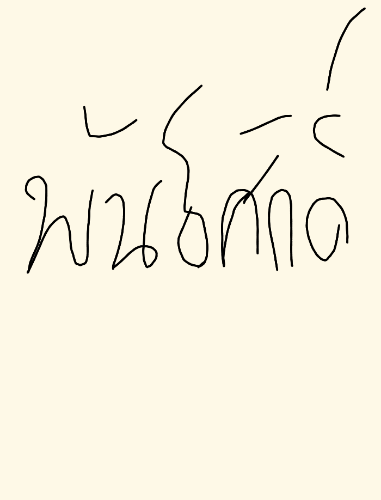 พันธศักดิ์